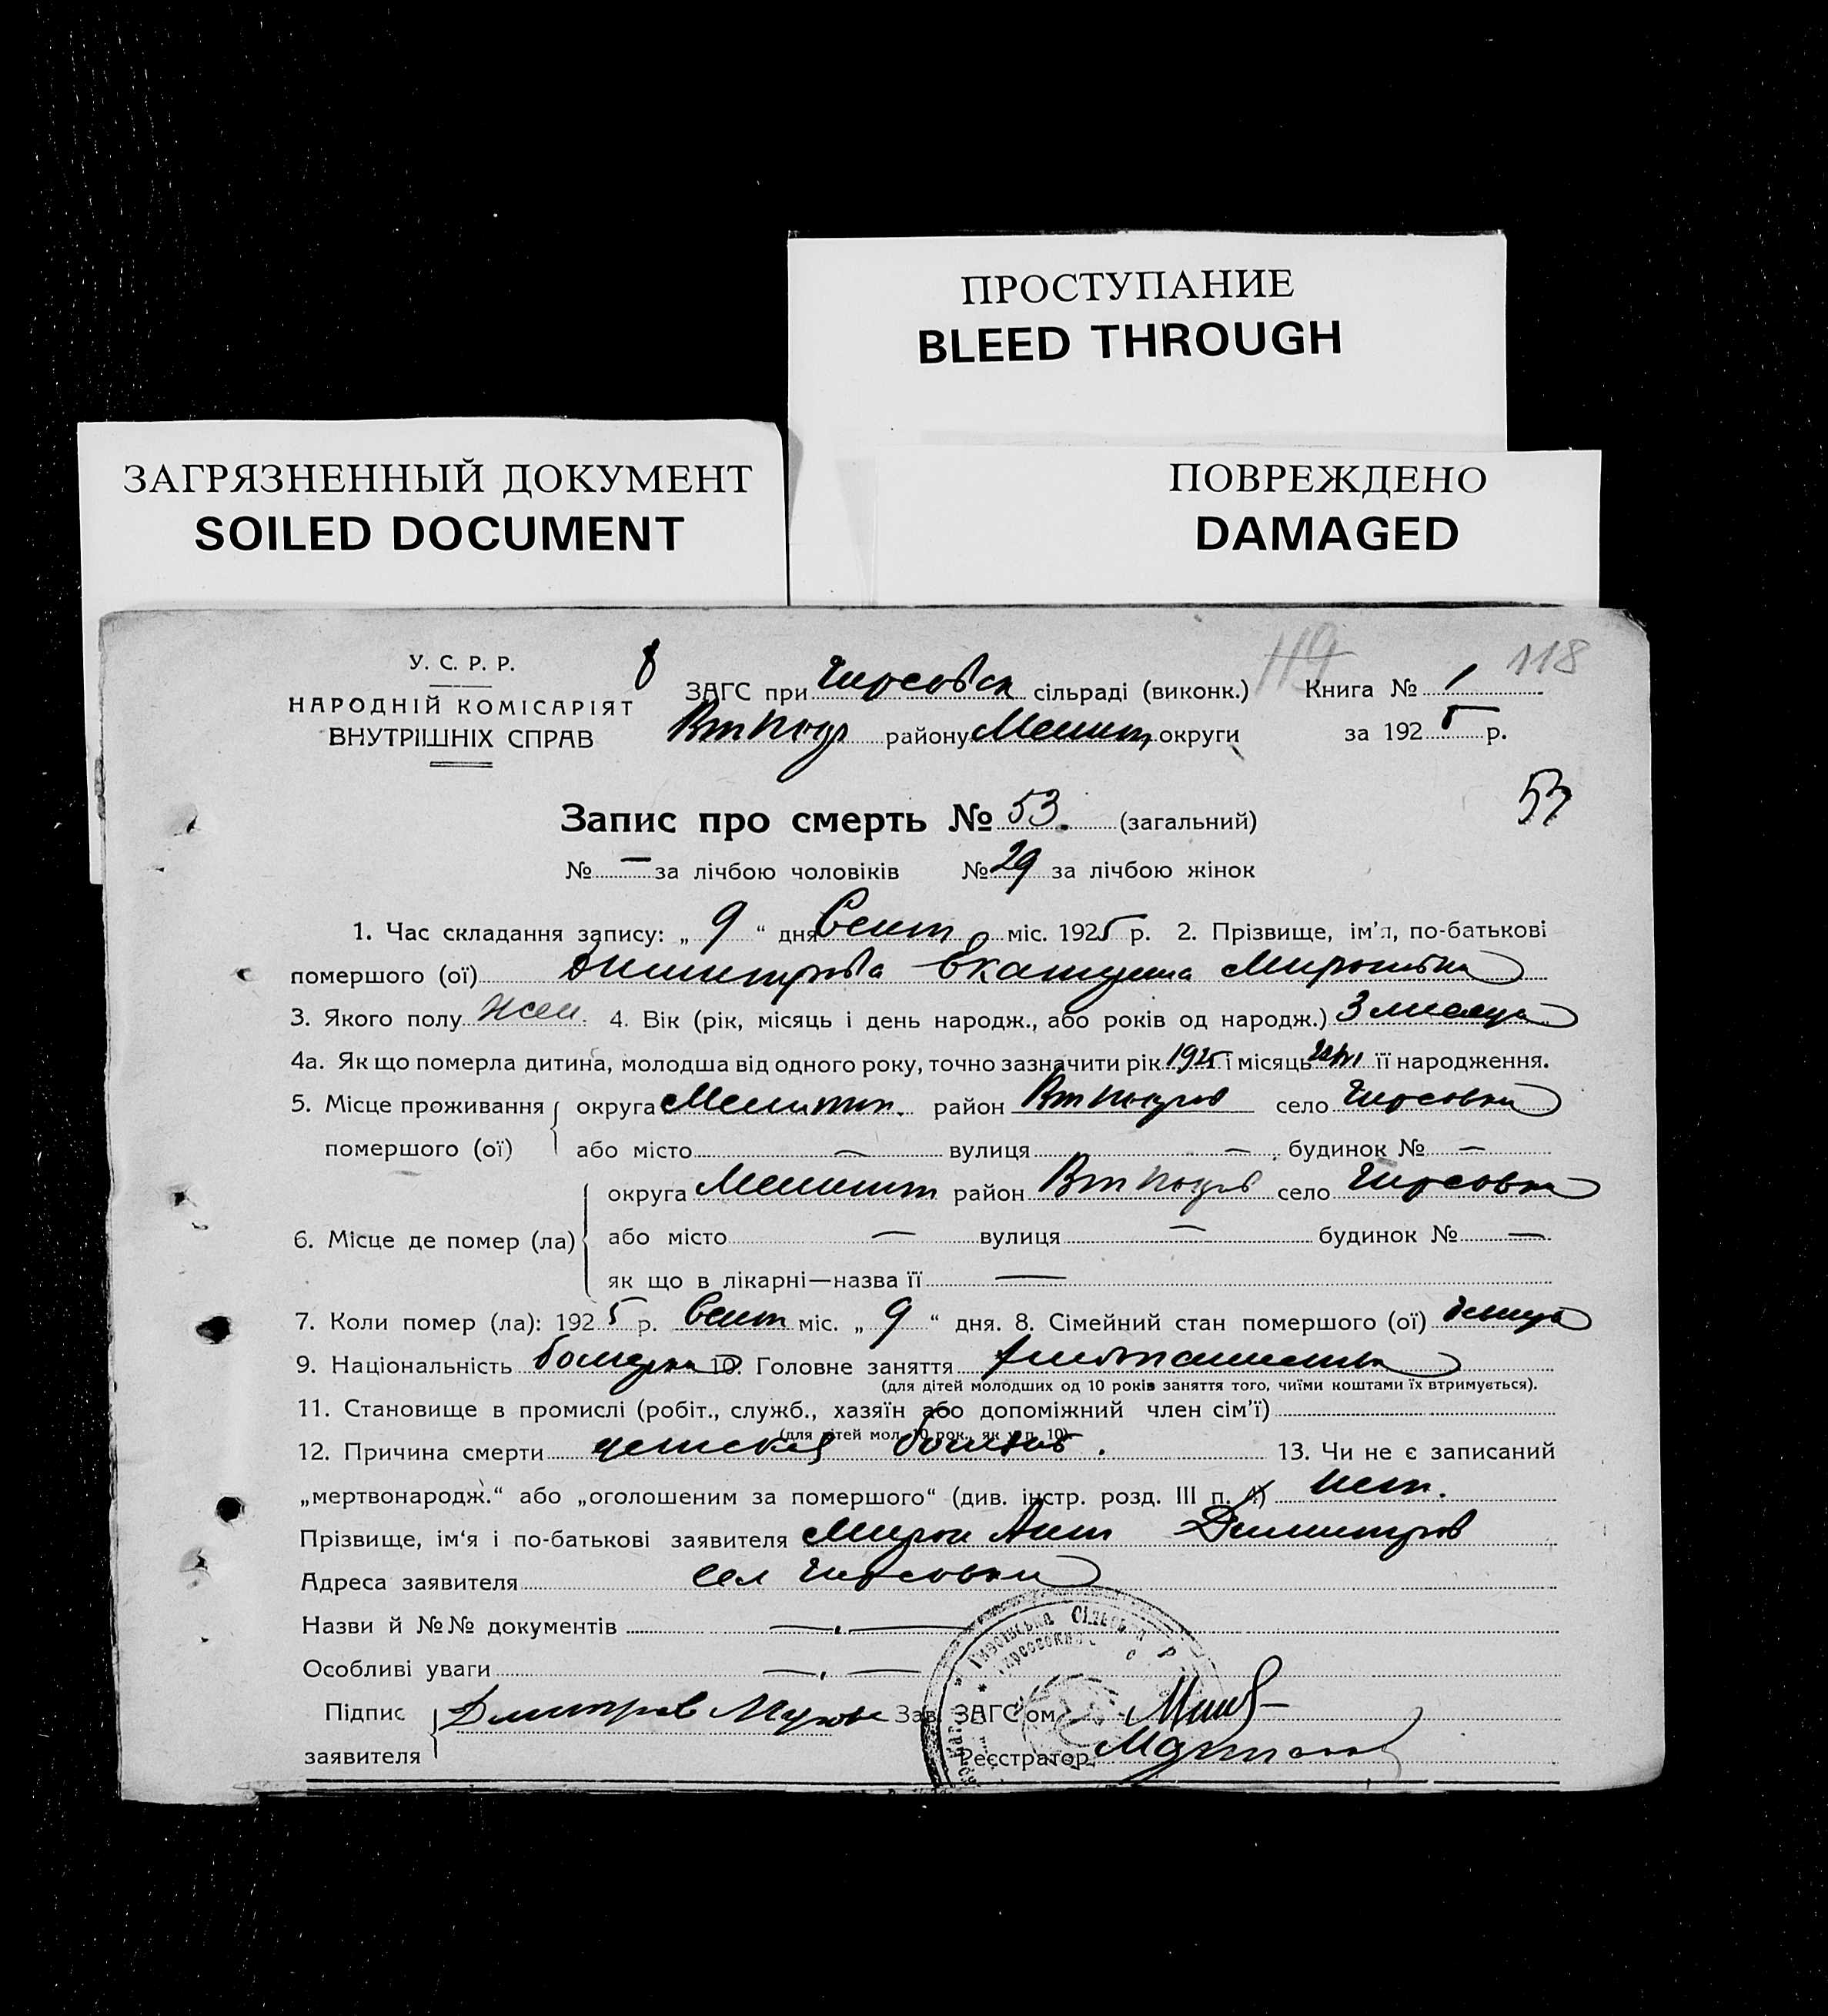 ПРОСТУПАНИЕ
BLEED THROUGH
ЗАГРЯЗНЕННЫЙ ДОКУМЕНТ
SOILED DOCUMENT
ПОВРЕЖДЕНО
DAMAGED
119 118
У. С. Р. Р.
НАРОДНІЙ КОМІСАРІЯТ
ВНУТРІШНІХ СПРАВ
8
ЗАГС при Гирсовск сільраді (виконк.) Книга № 1
району Мелит округи за 1925 р.
53
Запис про смерть № 53. (загальний)
№ — за лічбою чоловіків № 29 за лічбою жінок
1. Час складання запису: „ 9 “ дня Сент міс. 1925 р. 2. Прізвище, ім’я, по-батькові
помершого (ої) Димитрова Екатерина Мироновна
3. Якого полу Жен. 4. Вік (рік, місяць і день народж., або років од народж.) 3 месяца
4а. Як що померла дитина, молодша від одного року, точно зазначити рік 1925 і місяць її народження.
5. Місце проживання округа Мелитоп. район село Гирсовка
помершого (ої) або місто — вулиця — будинок № —
округа Мелит район село Гирсовка
6. Місце де помер (ла) або місто — вулиця — будинок № —
як що в лікарні—назва її —
7. Коли помер (ла): 1925 р. Сент міс. „ 9 “ дня. 8. Сімейний стан помершого (ої) девица
9. Національність болгарка 10. Головне заняття хлебопашество
(для дітей молодших од 10 років заняття того, чиїми коштами їх втримується).
11. Становище в промислі (робіт., служб., хазяїн або допоміжний член сім’ї)
(для дітей мол. 10 рок., як у п. 10)
12. Причина смерти детская болезнь. 13. Чи не є записаний
„мертвонародж.“ або „оголошеним за помершого“ (див. інстр. розд. III п. 4) нет.
Прізвище, ім‘я і по-батькові заявителя Мирон Ант Димитров
Адреса заявителя сел Гирсовка
Назви й №№ документів —„—
Особливі уваги —„—
Підпис Дмитров Мирон Зав. ЗАГС’ом
заявителя Реєстратор